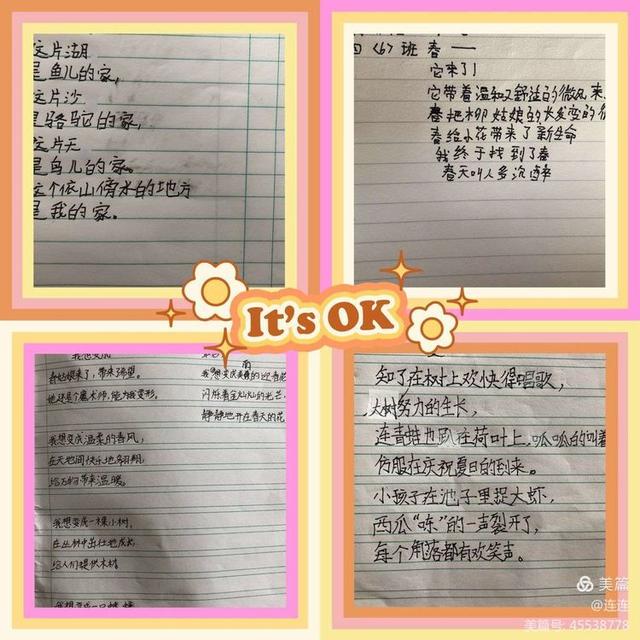 这片湖
是鱼儿的家,
这片沙
是骆驼的家,
这片天
是鸟儿的家。
这个依山傍水的地方
是我的家。
四〈6〉班 春 —
它来了!
它带着温和又舒适的微风来
春把柳姑娘的长发变的
春给小花带来了新生命
我终于找到了春
春天叫人多沉
It's OK
我想变成
春姑娘来了,带来希望。
她还是个魔术师,能为我变形。
我想变成温柔的春风,
在天地间快乐地翱翔,
给万物带来温暖。
我想变成一棵小树,
在丛林中茁壮地成长,
给人们提供木材
我想变成
我想变成美丽的迎春花
闪烁着金灿灿的光芒,
静静地开在春天的花
知了在树上欢快得唱歌,
大树努力的生长,
连青蛙也趴在荷叶上,呱呱的叫着
仿服在庆祝夏日的到来。
小孩子在池子里捉大虾,
西瓜“咚”的一声裂开了,
每个角落都有欢笑声。
美篇
@连连
美篇号: 45538778